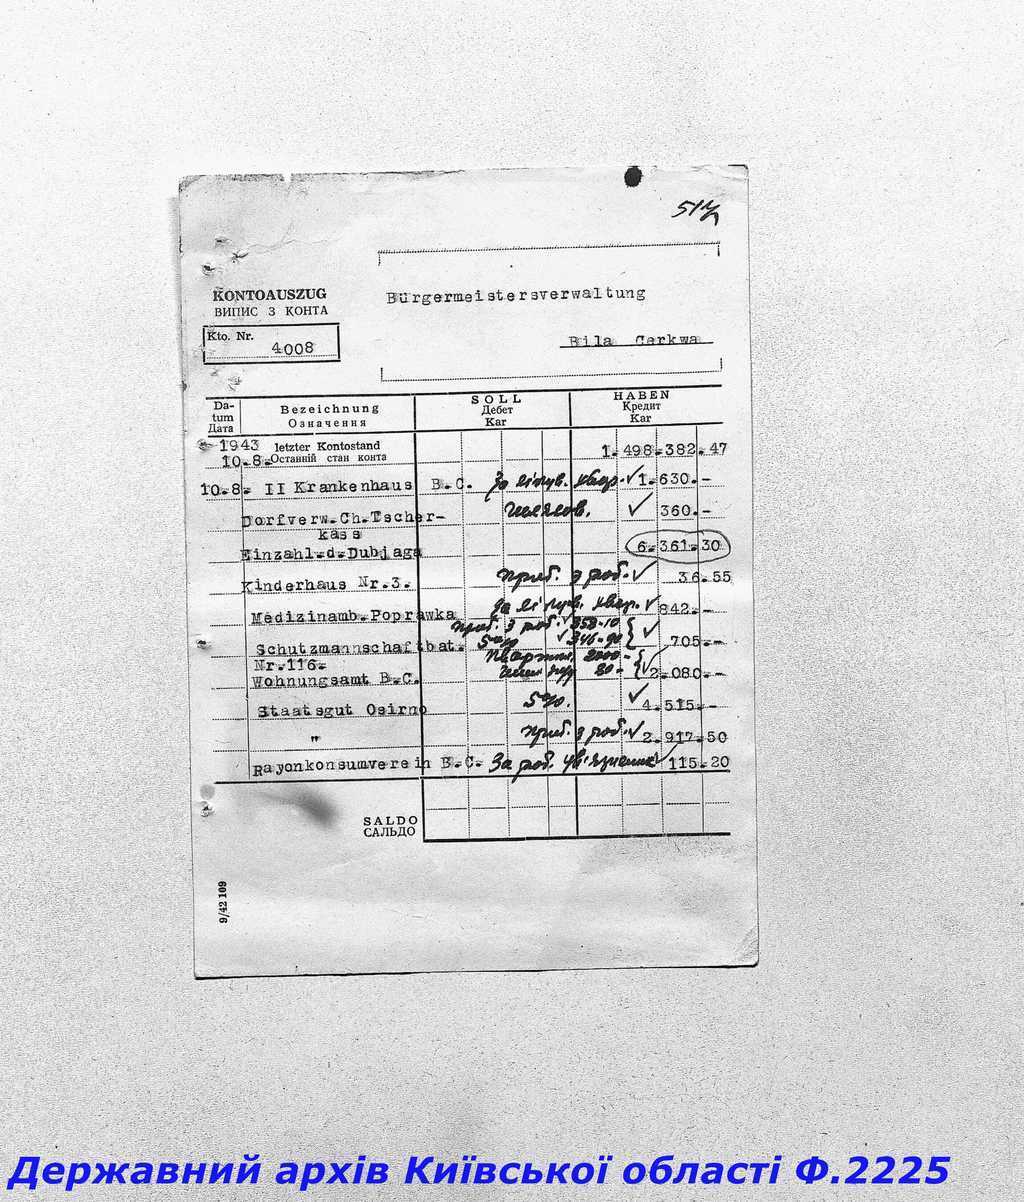 KONTOAUSZUG
ВИПИС З КОНТА
Kto. Nr.
4008
Bürgermeistersverwaltung
Bila Cerkwa
Da-
tum
Дата
Bezeichnung
Означення
SOLL
Дебет
Kar
HABEN
Кредит
Kar
1943 letzter Kontostand 1.498.382.47
10.8. Останній стан конта
10.8. II Krankenhaus B.C. За лікув. хвор. 1.630.-
Dorfverw.Ch.Tscher- 360.-
kass
Einzahl.d.Dubjaga 6.361.30
Kinderhaus Nr.3. приб. з роб. 36.55
Medizinamb.Poprawka За лікув. хвор. 842.-
приб. з роб. 358-10
Schutzmannschaftbat. 5% 346-90 705.-
Nr.116. 2000-
Wohnungsamt B.C. 80.- 2.080.-
Staatsgut Osirno 5%. 4.515.-
" приб. з роб. 2.917.50
Rayonkonsumverein B.C. За роб. 115.20
SALDO
САЛЬДО
9/42 109
Державний архів Київської області Ф.2225